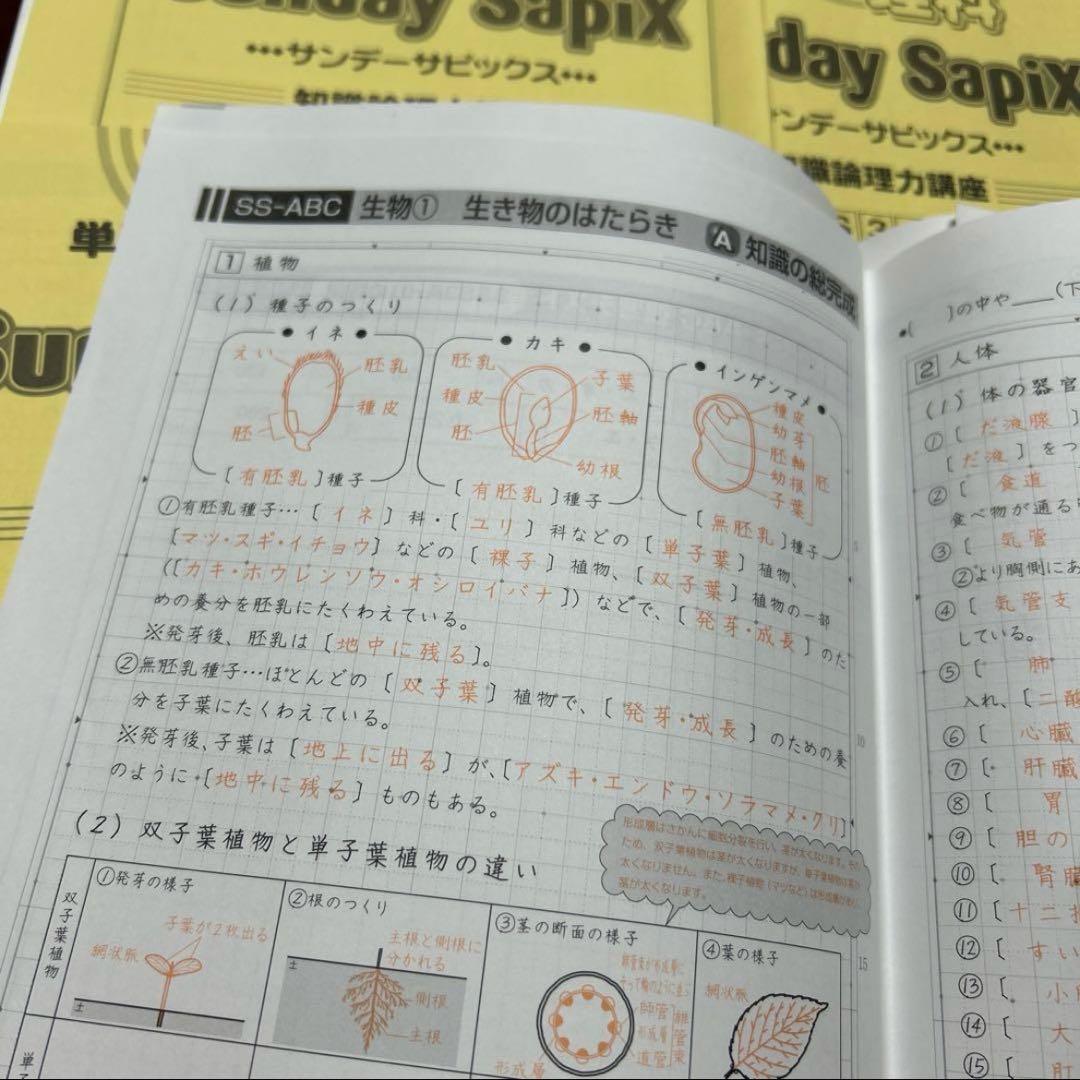 Sunday SapiX
•••サンデーサピックス•••
day SapiX
ンデーサピックス•••
識論理力講座
単
SS-ABC 生物① 生き物のはたらき A 知識の総完成
1 植物
(1) 種子のつくり
●イネ●
えい
胚乳
種皮
胚
[有胚乳]種子
●カキ●
胚乳
種皮
胚
子葉
胚軸
幼根
[有胚乳]種子
●インゲンマメ●
種皮
幼芽
胚軸
幼根
子葉
胚
[無胚乳]種子
①有胚乳種子…[イネ]科・[ユリ]科などの[単子葉]植物、
[マツ・スギ・イチョウ]などの[裸子]植物、[双子葉]植物の一部
([カキ・ホウレンソウ・オシロイバナ])などで、[発芽・成長]のた
めの養分を胚乳にたくわえている。
※発芽後、胚乳は[地中に残る]。
②無胚乳種子…ほとんどの[双子葉]植物で、[発芽・成長]のための養
分を子葉にたくわえている。
※発芽後、子葉は[地上に出る]が、[アズキ・エンドウ・ソラマメ・クリ]
のように[地中に残る]ものもある。
形成層はさかんに細胞分裂を行い、茎が太くなります。その
ため、双子葉植物は茎が太くなりますが、単子葉植物は茎が
太くなりません。また、裸子植物(マツなど)は形成層があり、
茎が太くなります。
(2) 双子葉植物と単子葉植物の違い
双子葉植物
①発芽の様子
子葉が2枚出る
網状脈
土
②根のつくり
主根と側根に
分かれる
土
側根
主根
③茎の断面の様子
師管
形成層
道管
維管束
形成層
④葉の様子
網状脈
単子
5
10
15
●[ ]の中や____(下
2 人体
(1) 体の器官
①[だ液腺]
[だ液]をつ
②[食道
食べ物が通る
③[気管
②より胸側にあ
④[気管支
している。
⑤[肺
入れ、[二酸
⑥[心臓
⑦[肝臓
⑧[胃
⑨[胆の
⑩[腎臓
⑪[十二指
⑫[すい
⑬[小
⑭[大
⑮[肛